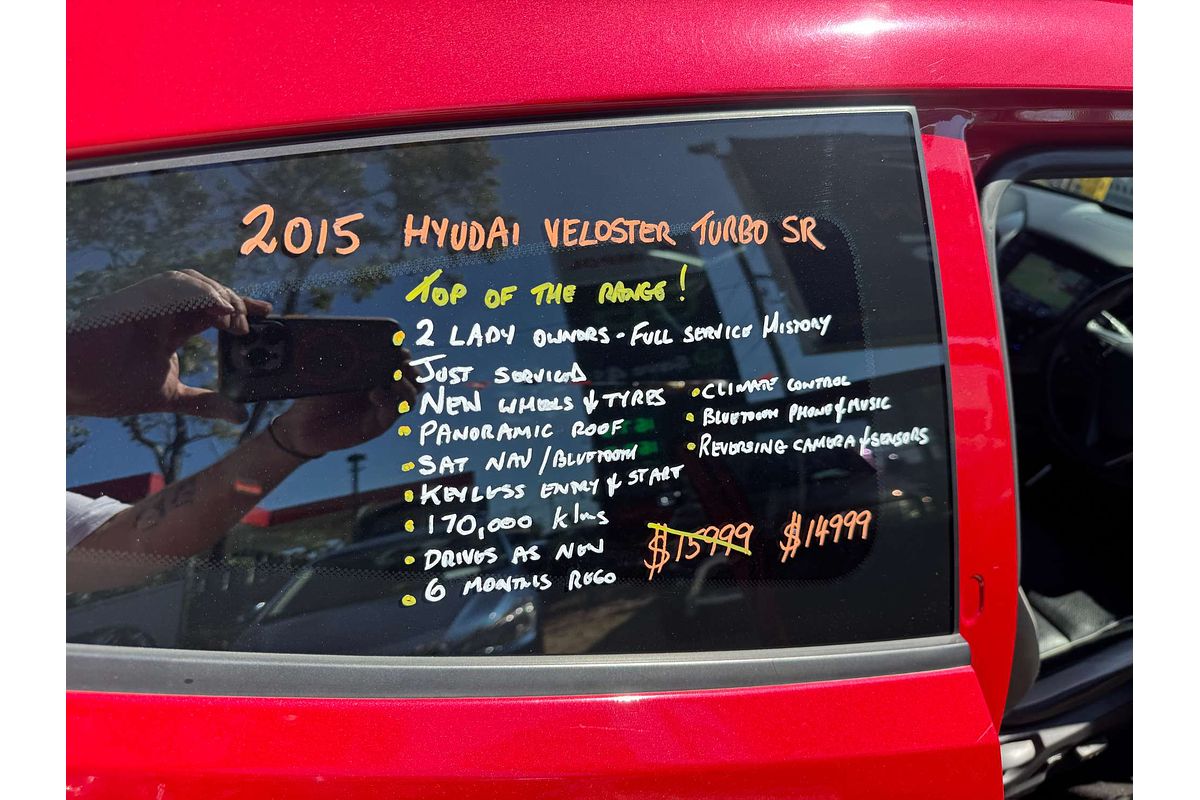 2015 HYUDAI VELOSTER TURBO SR
TOP OF THE RANGE!
• 2 LADY OWNERS - FULL SERVICE HISTORY
• JUST SERVICED
• NEW WHEELS & TYRES
• PANORAMIC ROOF
• SAT NAV / BLUETOOTH
• KEYLESS ENTRY & START
• 170,000 klms
• DRIVES AS NEW
• 6 MONTHS REGO
• CLIMATE CONTROL
• BLUETOOTH PHONE & MUSIC
• REVERSING CAMERA & SENSORS
$15999 $14999